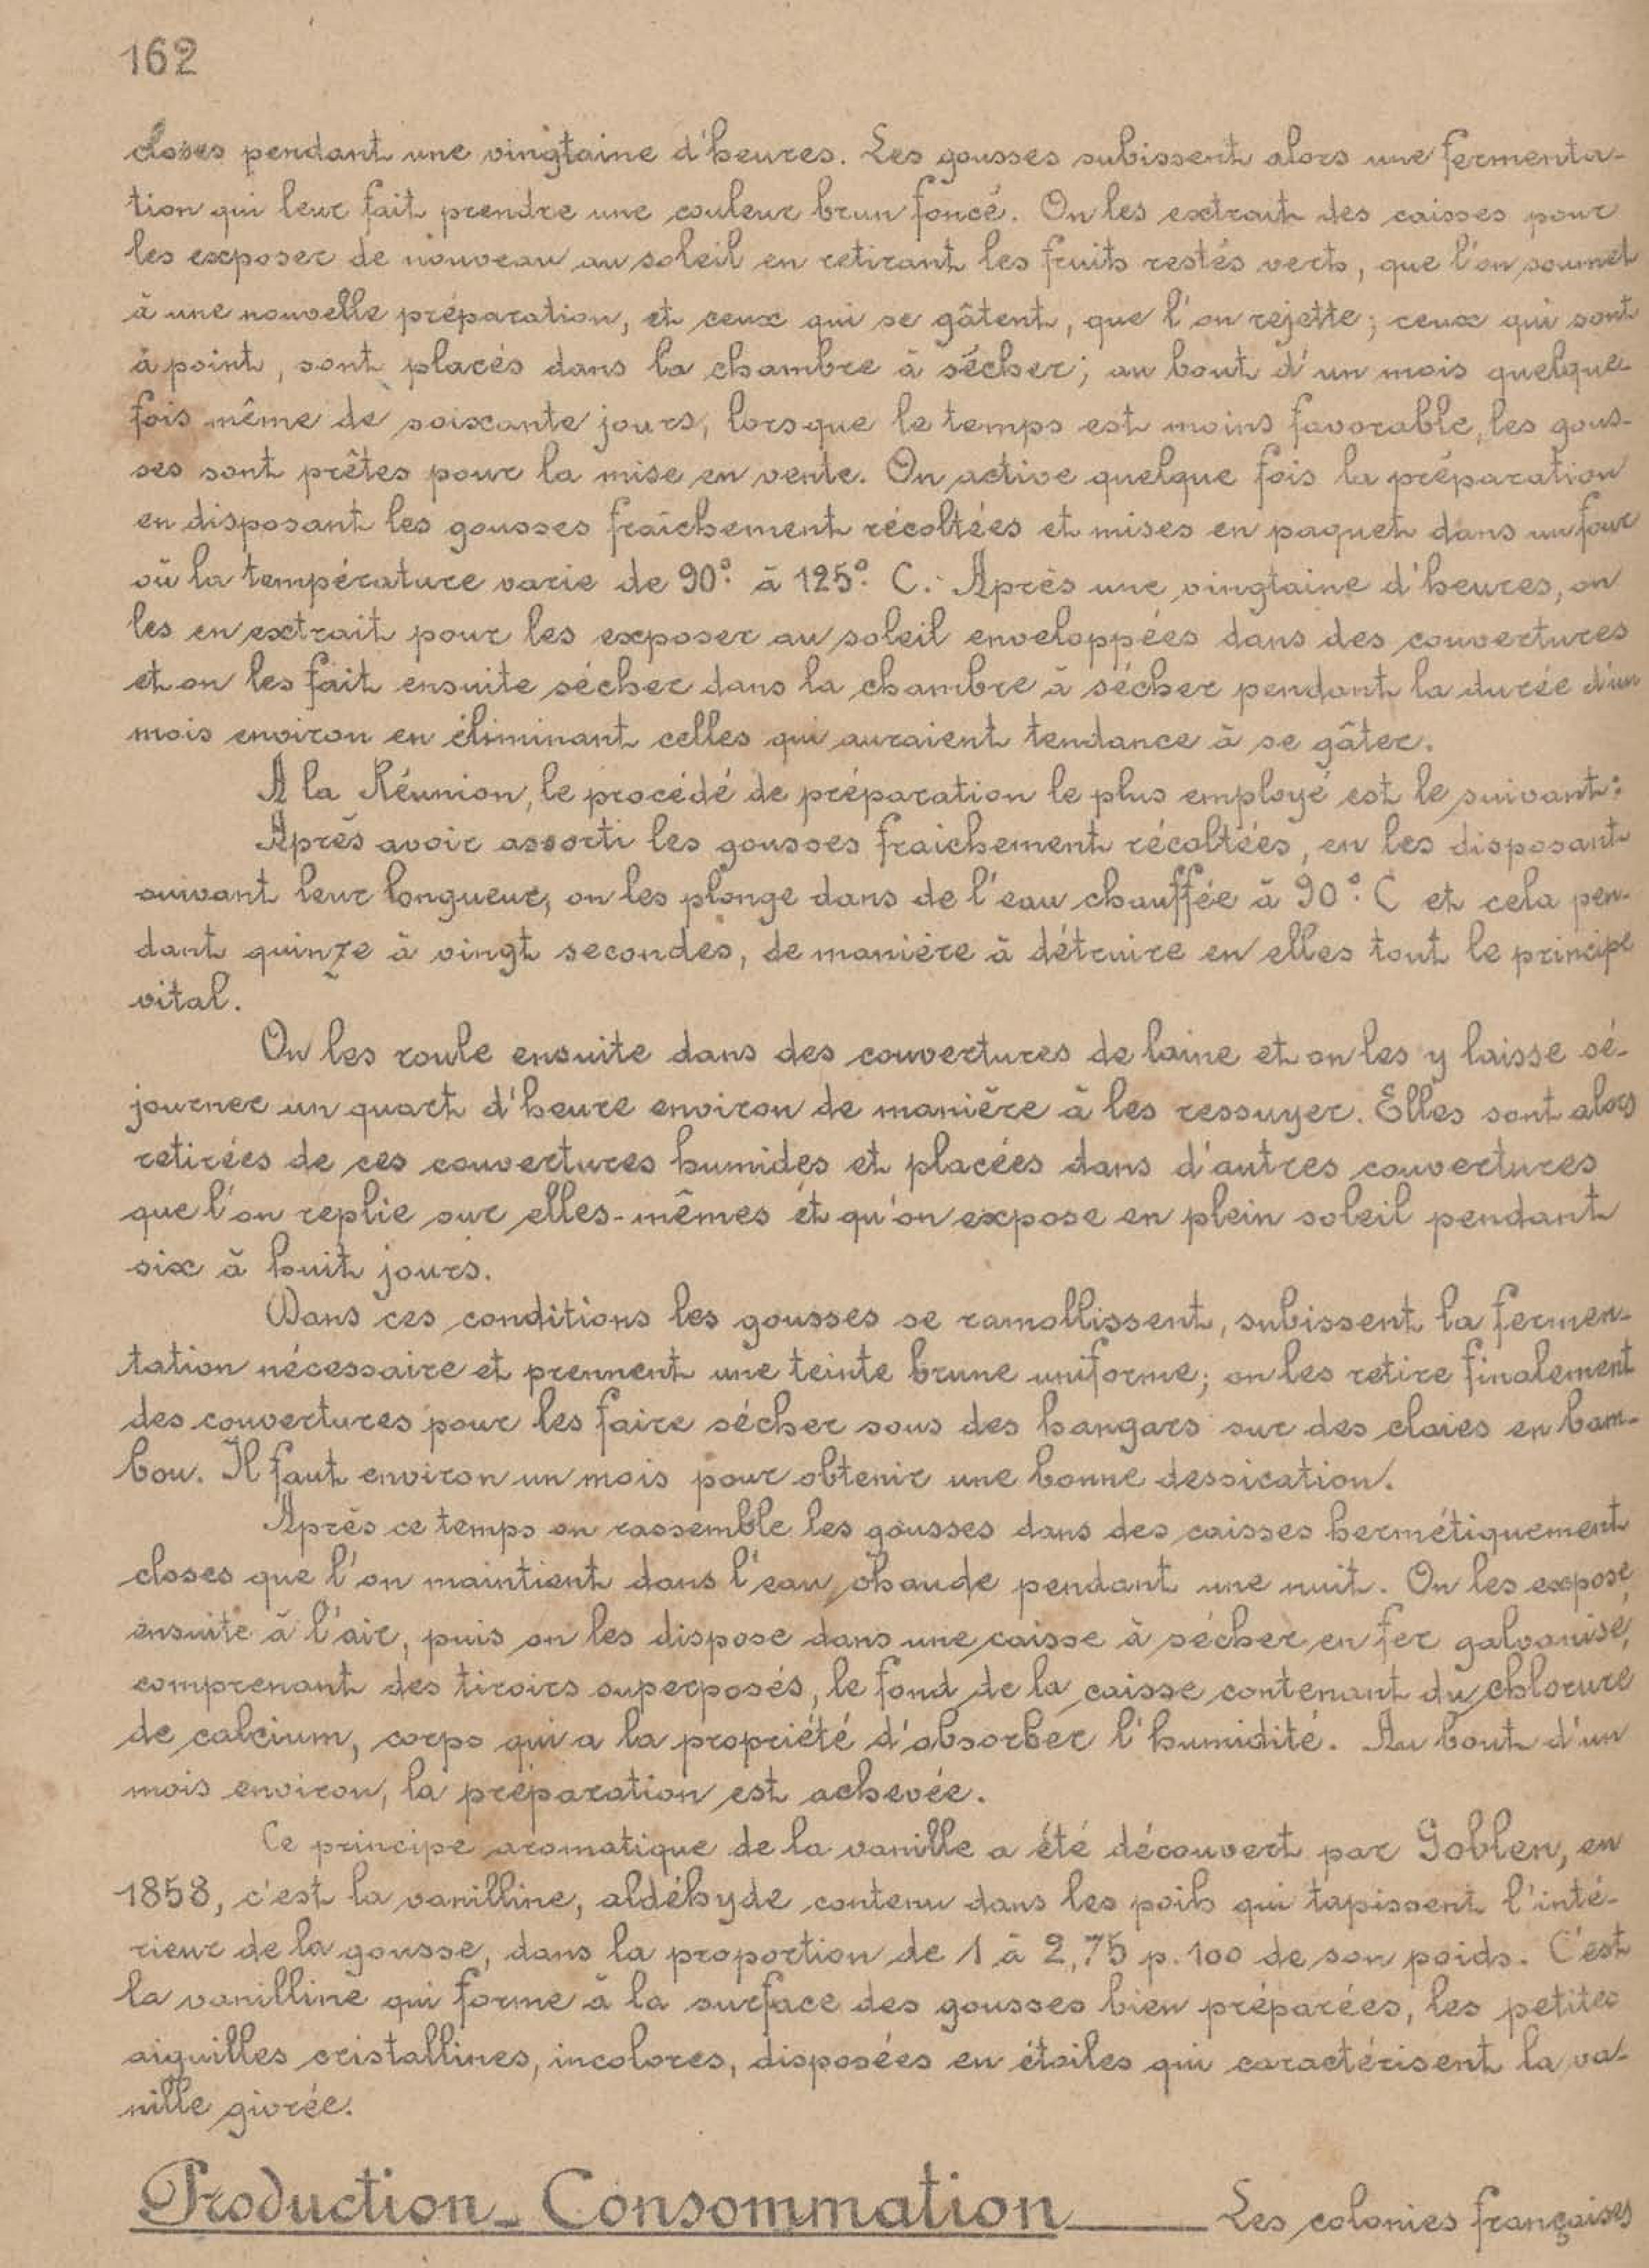 162
closes pendant une vingtaine d'heures. Les gousses subissent alors une fermenta-
tion qui leur fait prendre une couleur brun foncé. On les extrait des caisses pour
les exposer de nouveau au soleil en retirant les fruits restés verts, que l'on soumet
à une nouvelle préparation, et ceux qui se gâtent, que l'on rejette; ceux qui sont
à point, sont placés dans la chambre à sécher; au bout d'un mois quelque
fois même de soixante jours, lorsque le temps est moins favorable, les gous-
ses sont prêtes pour la mise en vente. On active quelque fois la préparation
en disposant les gousses fraîchement récoltées et mises en paquet dans un four
où la température varie de 90° à 125° C. Après une vingtaine d'heures, on
les en extrait pour les exposer au soleil enveloppées dans des couvertures
et on les fait ensuite sécher dans la chambre à sécher pendant la durée d'un
mois environ en éliminant celles qui auraient tendance à se gâter.
A la Réunion, le procédé de préparation le plus employé est le suivant:
Après avoir assorti les gousses fraichement récoltées, en les disposant
suivant leur longueur, on les plonge dans de l'eau chauffée à 90° C et cela pen-
dant quinze à vingt secondes, de manière à détruire en elles tout le principe
vital.
On les roule ensuite dans des couvertures de laine et on les y laisse sé-
journer un quart d'heure environ de manière à les ressuyer. Elles sont alors
retirées de ces couvertures humides et placées dans d'autres couvertures
que l'on replie sur elles-mêmes et qu'on expose en plein soleil pendant
six à huit jours.
Dans ces conditions les gousses se ramollissent, subissent la fermen-
tation nécessaire et prennent une teinte brune uniforme; on les retire finalement
des couvertures pour les faire sécher sous des hangars sur des claies en bam-
bou. Il faut environ un mois pour obtenir une bonne dessication.
Après ce temps on rassemble les gousses dans des caisses hermétiquement
closes que l'on maintient dans l'eau chaude pendant une nuit. On les expose
ensuite à l'air, puis on les dispose dans une caisse à sécher en fer galvanisé,
comprenant des tiroirs superposés, le fond de la caisse contenant du chlorure
de calcium, corps qui a la propriété d'absorber l'humidité. Au bout d'un
mois environ, la préparation est achevée.
Ce principe aromatique de la vanille a été découvert par Goblen, en
1858, c'est la vanilline, aldéhyde contenu dans les poils qui tapissent l'inté-
rieur de la gousse, dans la proportion de 1 à 2,75 p. 100 de son poids. C'est
la vanilline qui forme à la surface des gousses bien préparées, les petites
aiguilles cristallines, incolores, disposées en étoiles qui caractérisent la va-
nille givrée.
Production - Consommation ___ Les colonies françaises